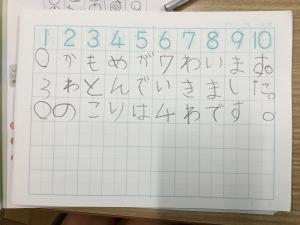 1 2 3 4 5 6 7 8 9 10
○かもめが7わいます。
3わとんでいきました。
○のこりは4わです。